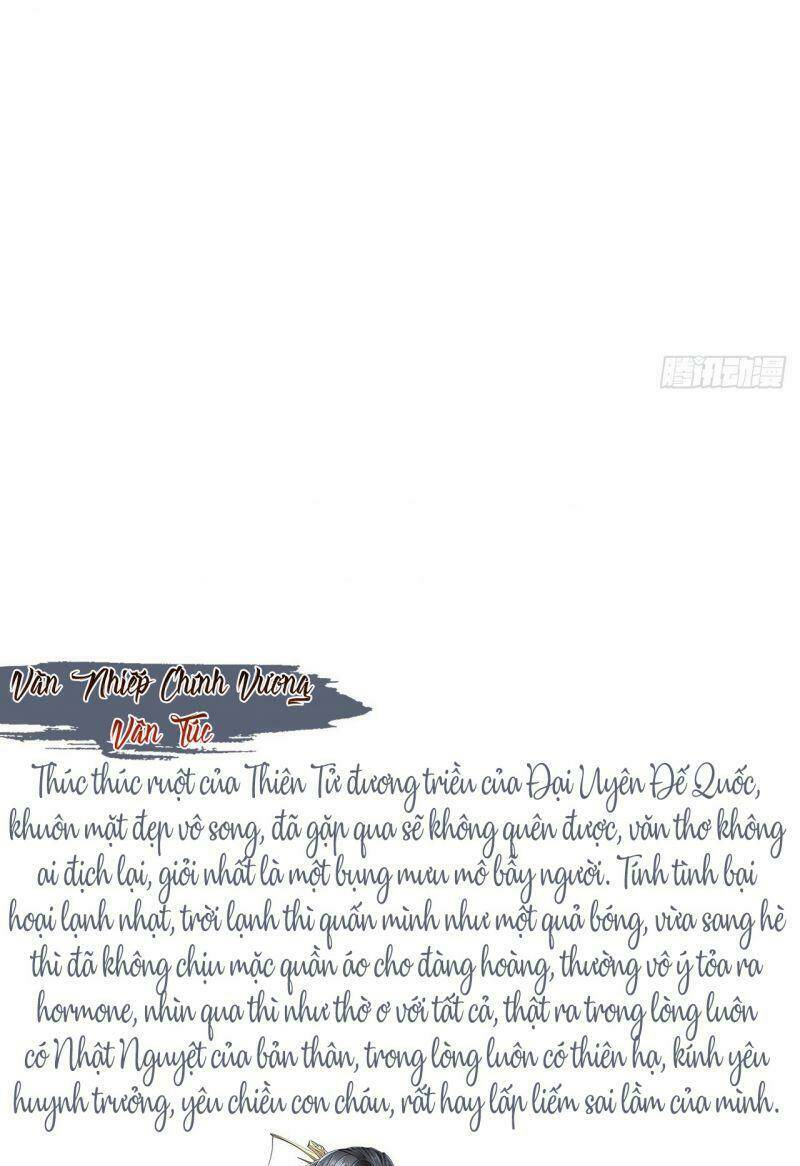 腾讯动漫
Vân Nhiếp Chính Vương
Vân Túc
Thúc thúc ruột của Thiên Tử đương triều của Đại Uyên Đế Quốc,
khuôn mặt đẹp vô song, đã gặp qua sẽ không quên được, văn thơ không
ai địch lại, giỏi nhất là một bụng mưu mô bẫy người. Tính tình bại
hoại lạnh nhạt, trời lạnh thì quấn mình như một quả bóng, vừa sang hè
thì đã không chịu mặc quần áo cho đàng hoàng, thường vô ý tỏa ra
hormone, nhìn qua thì như thờ ơ với tất cả, thật ra trong lòng luôn
có Nhật Nguyệt của bản thân, trong lòng luôn có thiên hạ, kính yêu
huynh trưởng, yêu chiều con cháu, rất hay lấp liếm sai lầm của mình.